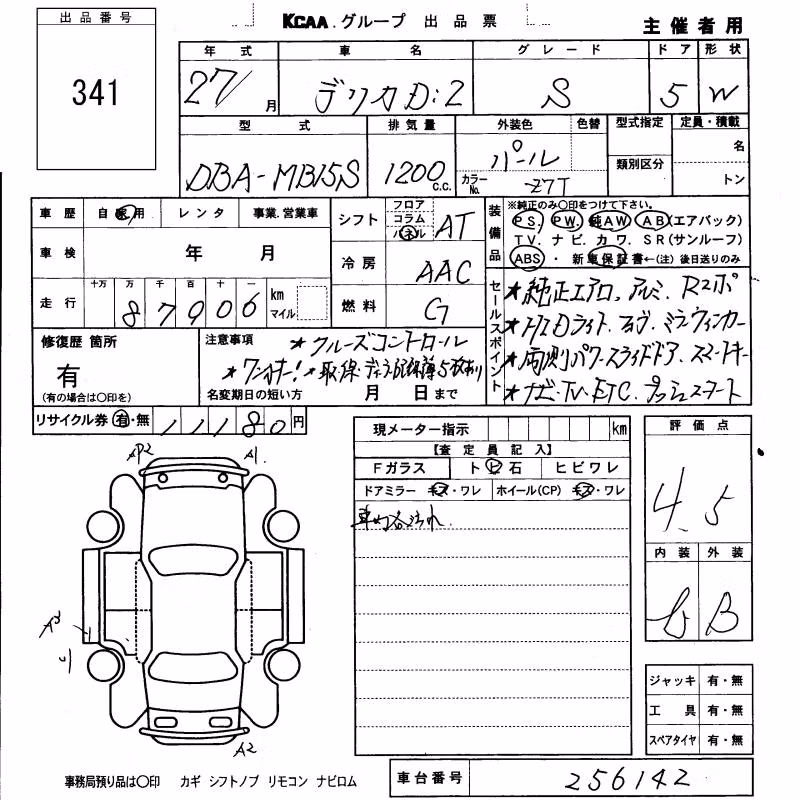 出品番号
341
KCAA.グループ 出品票
主催者用
年式 車名 グレード ドア 形状
27/ 月 デリカD:2 S 5 W
型式 排気量 外装色 色替 型式指定 定員・積載
DBA-MB15S 1200 c.c. パール 名
カラーNo. Z7T 類別区分 トン
車歴 自家用 レンタ 事業.営業車
シフト フロア コラム パネル AT
装備品 ※純正のみ〇印をつけて下さい。
PS. PW. 純AW AB(エアバック)
TV. ナビ. カワ. SR(サンルーフ)
ABS ・ 新車保証書←(注) 後日送りのみ
車検 年 月
冷房 AAC
走行 十万 万 千 百 十 一 km マイル
87906
燃料 G
セールスポイント
★純正エアロ、アルミ、Rスポ
★HIDライト.
★両側パワースライドドア.スマートキー
★ナビ・TV・ETC.プッシュスタート
修復歴 箇所
有
(有の場合は〇印を)
注意事項 ★クルーズコントロール
★ワンオーナー!★取保・
名変期日の短い方 月 日まで
リサイクル券 有・無 11180円
現メーター指示 km
【査定員記入】
Fガラス ト ビ 石 ヒビワレ
ドアミラー キズ・ワレ ホイール(CP) キズ・ワレ
車内各汚れ.
評価点
4.5
内装 外装
B
AP2 A1
A3
A2
ジャッキ 有・無
工具 有・無
スペアタイヤ 有・無
事務局預り品は〇印 カギ シフトノブ リモコン ナビロム
車台番号 256142